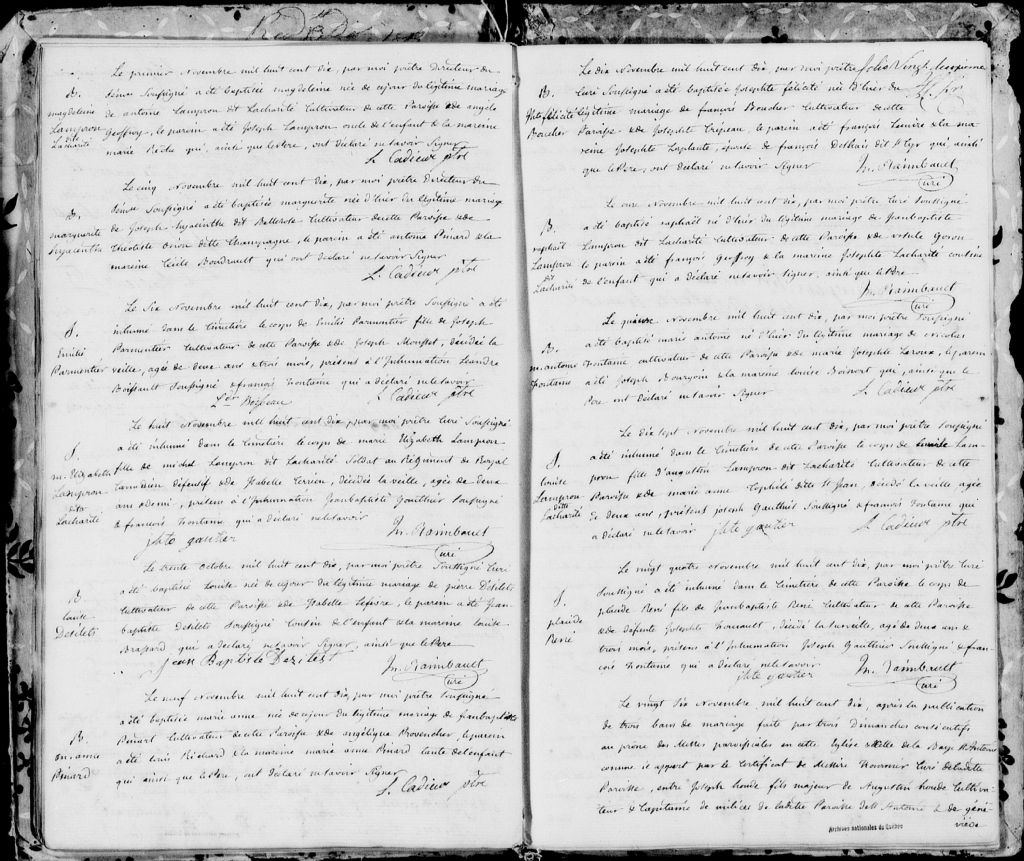 Le premier Novembre mil huit cent dix, par moi prêtre Directeur du
B. Séminaire Soussigné a été baptisée magdeleine née de cejour du légitime mariage
magdeleine de antoine Lampron dit Lacharité Cultivateur de cette Paroisse & de angele
Lampron Geoffroy, le parein a été Joseph Lampron oncle de l'enfant & la mareine
dite Lacharité marie Pêche qui, ainsi que le Pere, ont déclaré ne savoir Signer
L. Cadieux ptre
Le cinq Novembre mil huit cent dix, par moi prêtre Directeur du
B. Soussigné a été baptisée marguerite née d'hier du légitime mariage
marguerite de Joseph hyacinthe dit Bellerose Cultivateur de cette Paroisse & de
hyacinthe Theotiste Orion ditte Champagne, le parein a été antoine Pinard & la
mareine Cécile Boudrault qui ont déclaré ne savoir Signer
L. Cadieux ptre
Le Six Novembre mil huit cent dix, par moi prêtre Soussigné a été
S. inhumé dans le Cimetière le corps de Emilie Parmentier fille de Joseph
Emilie Parmentier Cultivateur de cette Paroisse & de Joseph décédée la
Parmentier veille, agée de deux ans & trois mois, présens à l'Inhumation Leandre
Soussigné & françois fontaine qui a déclaré ne le savoir
L. Cadieux ptre
Le huit Novembre mil huit cent dix, par moi prêtre Curé Soussigné
S. a été inhumé dans le Cimetière le corps de marie Elizabeth Lampron
m. Elizabeth fille de michel Lampron dit Lacharité Soldat au Régiment de Royal
Lampron Canadien & de Isabelle décédée la veille, agée de deux
dite ans & demi, présens à l'Inhumation Jeanbaptiste Gauthier Soussigné
Lacharité & francois fontaine qui a déclaré ne le savoir
jbte gautier M. Raimbault
Curé
Le trente Octobre mil huit cent dix, par moi prêtre Soussigné Curé
B. a été baptisée Louise née de cejour du légitime mariage de pierre Désilets
Louise Cultivateur de cette Paroisse & de Isabelle le parein a été Jean
Désilets baptiste Désilets Soussigné Cousin de l'enfant & la mareine Louise
Brassard qui a déclaré ne savoir Signer, ainsi que le Pere
Jean Baptiste Dezilest M. Raimbault
Curé
Le neuf Novembre mil huit cent dix, par moi prêtre Soussigné
a été baptisée marie anne née de cejour du légitime mariage de Jeanbaptiste
B. Pinart Cultivateur de cette Paroisse & de angelique Provencher, le parein
m. anne a été Louis Richard & la mareine marie anne Pinard tante de l'enfant
Pinard qui ainsi que le Pere, ont déclaré ne savoir Signer
L. Cadieux ptre
Folio Vingt
Le dix Novembre mil huit cent dix, par moi prêtre
B. Curé Soussigné a été baptisée Josephte félicité née d'hier du
félicité légitime mariage de françois Boucher Cultivateur de cette
Boucher Paroisse & de Josephte Crépeau, le parein a été françois & la ma
reine Josephte Laplante, épouse de françois qui, ainsi
que le Pere, ont déclaré ne savoir Signer
M. Raimbault
Curé
Le onze Novembre mil huit cent dix, par moi prêtre Curé Soussigné
B. a été baptisé raphaël né d'hier du légitime mariage de Jeanbaptiste
raphaël Lampron dit Lacharité Cultivateur de cette Paroisse & de ursule
Lampron le parein a été françois Geoffroy & la mareine Josephte Lacharité cousine
dit Lacharité de l'enfant qui a déclaré ne savoir Signer, ainsi que le Pere
M. Raimbault
Curé
Le quinze Novembre mil huit cent dix, par moi prêtre Soussigné
B. a été baptisé marie antoine né d'hier du légitime mariage de nicolas
m. antoine fontaine cultivateur de cette Paroisse & de marie Josephte Leroux, le parein
fontaine a été Joseph Bourgoin & la mareine Louise Boisvert qui, ainsi que le
Pere ont déclaré ne savoir Signer
L. Cadieux ptre
Le dix Sept Novembre mil huit cent dix, par moi prêtre Soussigné
S. a été inhumé dans le Cimetière de cette Paroisse le corps de Lam-
Louise pron fille d'augustin Lampron dit Lacharité Cultivateur de cette
Lampron Paroisse & de marie anne ditte St Jean, décédé la veille agée
ditte Lacharité de deux ans, présens Joseph Gauthier Soussigné & francois fontaine qui
a déclaré ne le savoir jbte gautier L. Cadieux ptre
Le vingt quatre Novembre mil huit cent dix, par moi prêtre Curé
S. Soussigné a été inhumé dans le Cimetière de cette Paroisse le corps de
placide placide René fils de Jeanbaptiste René Cultivateur de cette Paroisse
René & de défunte Josephte décédé la surveille, agé de deux ans &
trois mois, présens à l'Inhumation Joseph Gauthier Soussigné & fran-
çois fontaine qui a déclaré ne le savoir
jbte gautier M. Raimbault
Curé
Le vingt Six Novembre mil huit cent dix, après la publication
de trois bans de mariage faite par trois Dimanches consécutifs
au prône des Messes paroissiales en cette Eglise & celle de la Baye St Antoine
comme il appert par le Certificat de Messire Fournier Curé de ladite
Paroisse, entre Joseph houde fils majeur de Augustin houde Cultiva-
teur & Capitaine de milices de ladite Paroisse de St Antoine & de géné-
viève
Archives nationales du Québec